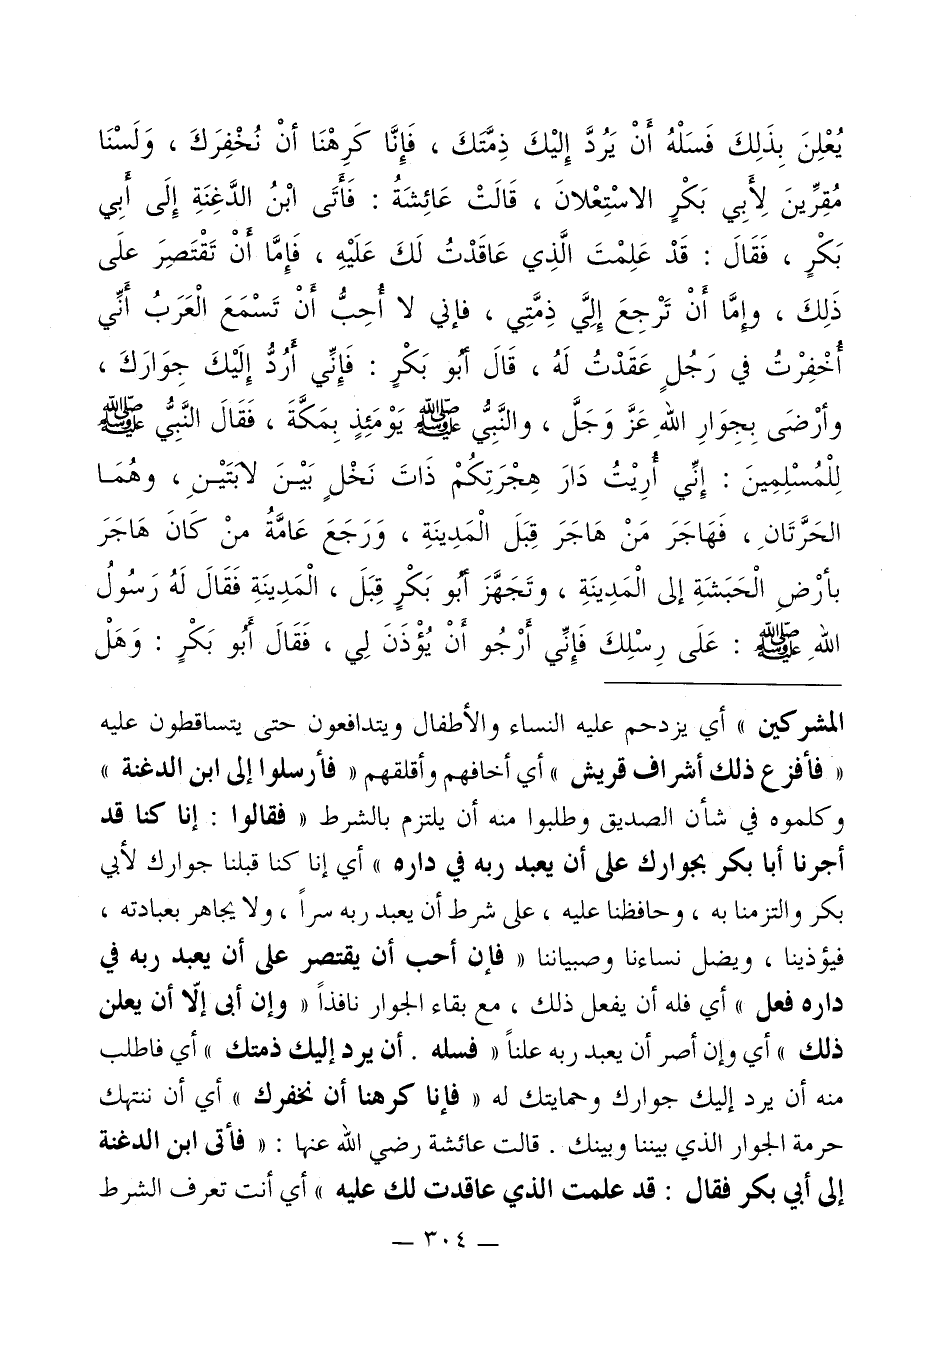 يُعْلِنَ بِذَلِكَ فَسَلْهُ أَنْ يَرُدَّ إِلَيْكَ ذِمَّتَكَ ، فَإِنَّا كَرِهْنَا أنْ نُخْفِرَكَ ، وَلَسْنَا
مُقِرِّينَ لِأَبِي بَكْرٍ الاسْتِعْلانَ ، قَالَتْ عَائِشَةُ : فَأَتَى ابْنُ الدَّغِنَةِ إِلَى أَبِي
بَكْرٍ ، فَقَالَ : قَدْ عَلِمْتَ الَّذِي عَاقَدْتُ لَكَ عَلَيْهِ ، فَإِمَّا أَنْ تَقْتَصِرَ علَى
ذَلِكَ ، وإِمَّا أَنْ تَرْجِعَ إِلَيَّ ذِمَّتِي ، فإني لا أُحِبُّ أَنْ تَسْمَعَ الْعَرَبُ أَنِّي
أُخْفِرْتُ في رَجُلٍ عَقَدْتُ لَهُ ، قَالَ أَبُو بَكْرٍ : فَإِنِّي أَرُدُّ إِلَيْكَ جِوَارَكَ ،
وأرْضَى بِجِوَارِ اللهِ عَزَّ وَجَلَّ ، والنَّبِيُّ ﷺ يَوْمَئِذٍ بِمَكَّةَ ، فَقَالَ النَّبِيُّ ﷺ
لِلْمُسْلِمِينَ : إِنِّي أُرِيْتُ دَارَ هِجْرَتِكُمْ ذَاتَ نَخْلٍ بَيْنَ لابَتَيْنِ ، وهُمَا
الحَرَّتَانِ ، فَهَاجَرَ مَنْ هَاجَرَ قِبَلَ الْمَدِينَةِ ، وَرَجَعَ عَامَّةُ منْ كَانَ هَاجَرَ
بأَرْضِ الْحَبَشَةِ إلى الْمَدِينَةِ ، وتَجَهَّزَ أَبُو بَكْرٍ قِبَلَ ، الْمَدِينَةِ فَقَالَ لَهُ رَسُولُ
اللهِ ﷺ : عَلَى رِسْلِكَ فَإِنِّي أَرْجُو أَنْ يُؤْذَنَ لِي ، فَقَالَ أَبُو بَكْرٍ : وَهَلْ
المشركين » أي يزدحم عليه النساء والأطفال ويتدافعون حتى يتساقطون عليه
« فأفزع ذلك أشراف قريش » أي أخافهم وأقلقهم « فأرسلوا إلى ابن الدغنة »
وكلموه في شأن الصديق وطلبوا منه أن يلتزم بالشرط « فقالوا : إنا كنا قد
أجرنا أبا بكر بجوارك على أن يعبد ربه في داره » أي إنا كنا قبلنا جوارك لأبي
بكر والتزمنا به ، وحافظنا عليه ، على شرط أن يعبد ربه سراً ، ولا يجاهر بعبادته ،
فيؤذينا ، ويضل نساءنا وصبياننا « فإن أحب أن يقتصر على أن يعبد ربه في
داره فعل » أي فله أن يفعل ذلك ، مع بقاء الجوار نافذاً « وإن أبى إلّا أن يعلن
ذلك » أي وإن أصر أن يعبد ربه علناً « فسله . أن يرد إليك ذمتك » أي فاطلب
منه أن يرد إليك جوارك وحمايتك له « فإنا كرهنا أن نخفرك » أي أن ننتهك
حرمة الجوار الذي بيننا وبينك . قالت عائشة رضي الله عنها : « فأتى ابن الدغنة
إلى أبي بكر فقال : قد علمت الذي عاقدت لك عليه » أي أنت تعرف الشرط
— ٣٠٤ —